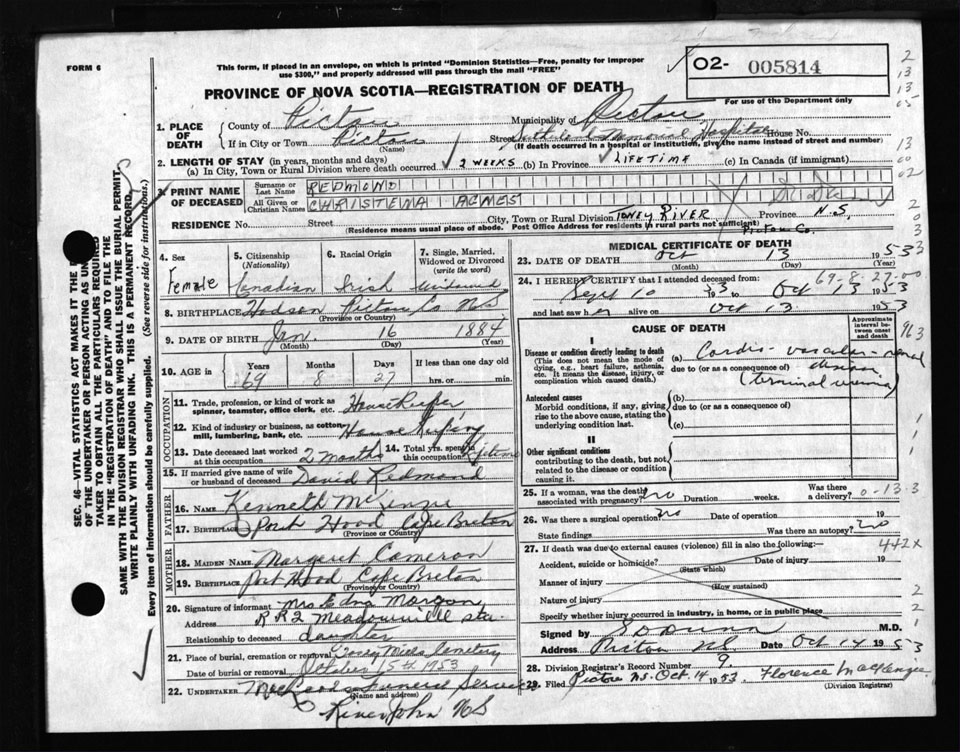 FORM 6
This form, if placed in an envelope, on which is printed "Dominion Statistics—Free, penalty for improper
use $300," and properly addressed will pass through the mail "FREE"
✓ O2- 005814
For use of the Department only
PROVINCE OF NOVA SCOTIA—REGISTRATION OF DEATH
1. PLACE OF DEATH
County of Pictou Municipality of Pictou
If in City or Town Pictou Street Memorial Hospital House No.
(Name) (If death occurred in a hospital or institution, give the name instead of street and number)
2. LENGTH OF STAY (in years, months and days)
(a) In City, Town or Rural Division where death occurred 2 WEEKS (b) In Province LIFETIME (c) In Canada (if immigrant)
3. PRINT NAME OF DECEASED
Surname or Last Name REDMOND
All Given or Christian Names CHRISTENA AGNES
RESIDENCE No. Street City, Town or Rural Division TONEY RIVER Province N.S.
(Residence means usual place of abode. Post Office Address for residents in rural parts not sufficient) Pictou Co.
4. Sex Female
5. Citizenship (Nationality) Canadian
6. Racial Origin Irish
7. Single, Married, Widowed or Divorced (write the word) Widowed
8. BIRTHPLACE Hodson Pictou Co NS
(Province or Country)
9. DATE OF BIRTH Jan. 16 1884
(Month) (Day) (Year)
10. AGE in Years 69 Months 8 Days 27 If less than one day old hrs. or min.
OCCUPATION
11. Trade, profession or kind of work as spinner, teamster, office clerk, etc. Housekeeper
12. Kind of industry or business, as cotton mill, lumbering, bank, etc. House Keeping
13. Date deceased last worked at this occupation 2 months
14. Total yrs. spent in this occupation Lifetime
15. If married give name of wife or husband of deceased David Redmond
FATHER
16. Name Kenneth McKenzie
17. Birthplace Port Hood Cape Breton
(Province or Country)
MOTHER
18. MAIDEN NAME Margaret Cameron
19. BIRTHPLACE Port Hood Cape Breton
(Province or Country)
20. Signature of informant Mrs Edna Morgan
Address RR2 Meadowville Sta.
Relationship to deceased daughter
21. Place of burial, cremation or removal Cemetery
Date of burial or removal October 15th 1953
22. UNDERTAKER Funeral Service
(Name and address)
River John NS
MEDICAL CERTIFICATE OF DEATH
23. DATE OF DEATH Oct 13 1953
(Month) (Day) (Year)
69-8-27-00
24. I HEREBY CERTIFY that I attended deceased from:
Sept 10 1953 to Oct 13 1953
and last saw her alive on Oct 13 1953
CAUSE OF DEATH
Approximate interval between onset and death
I
Disease or condition directly leading to death
(This does not mean the mode of dying, e.g., heart failure, asthenia, etc. It means the disease, injury, or complication which caused death.)
(a) Cardio-vascular-renal disease
due to (or as a consequence of)
(terminal uremia)
Antecedent causes
Morbid conditions, if any, giving rise to the above cause, stating the underlying condition last.
(b)
due to (or as a consequence of)
(c)
II
Other significant conditions
contributing to the death, but not related to the disease or condition causing it.
25. If a woman, was the death associated with pregnancy? no Duration weeks. Was there a delivery? 0-13-3
26. Was there a surgical operation? no Date of operation
State findings Was there an autopsy? no
27. If death was due to external causes (violence) fill in also the following:— 442X
Accident, suicide or homicide? Date of injury 19
(State which)
Manner of injury
(How sustained)
Nature of injury
Specify whether injury occurred in industry, in home, or in public place
Signed by M.D.
Address Pictou NS. Date Oct 14 1953
28. Division Registrar's Record Number 9.
29. Filed Pictou NS. Oct. 14 1953 Florence MacKenzie
(Division Registrar)
SEC. 46—VITAL STATISTICS ACT MAKES IT THE
OF THE UNDERTAKER OR PERSON ACTING AS UN
TAKER TO OBTAIN ALL THE PARTICULARS REQUIRED
IN THE "REGISTRATION OF DEATH" AND TO FILE THE
SAME WITH THE DIVISION REGISTRAR WHO SHALL ISSUE THE BURIAL PERMIT.
WRITE PLAINLY WITH UNFADING INK. THIS IS A PERMANENT RECORD.
Every item of information should be carefully supplied. (See reverse side for instructions.)